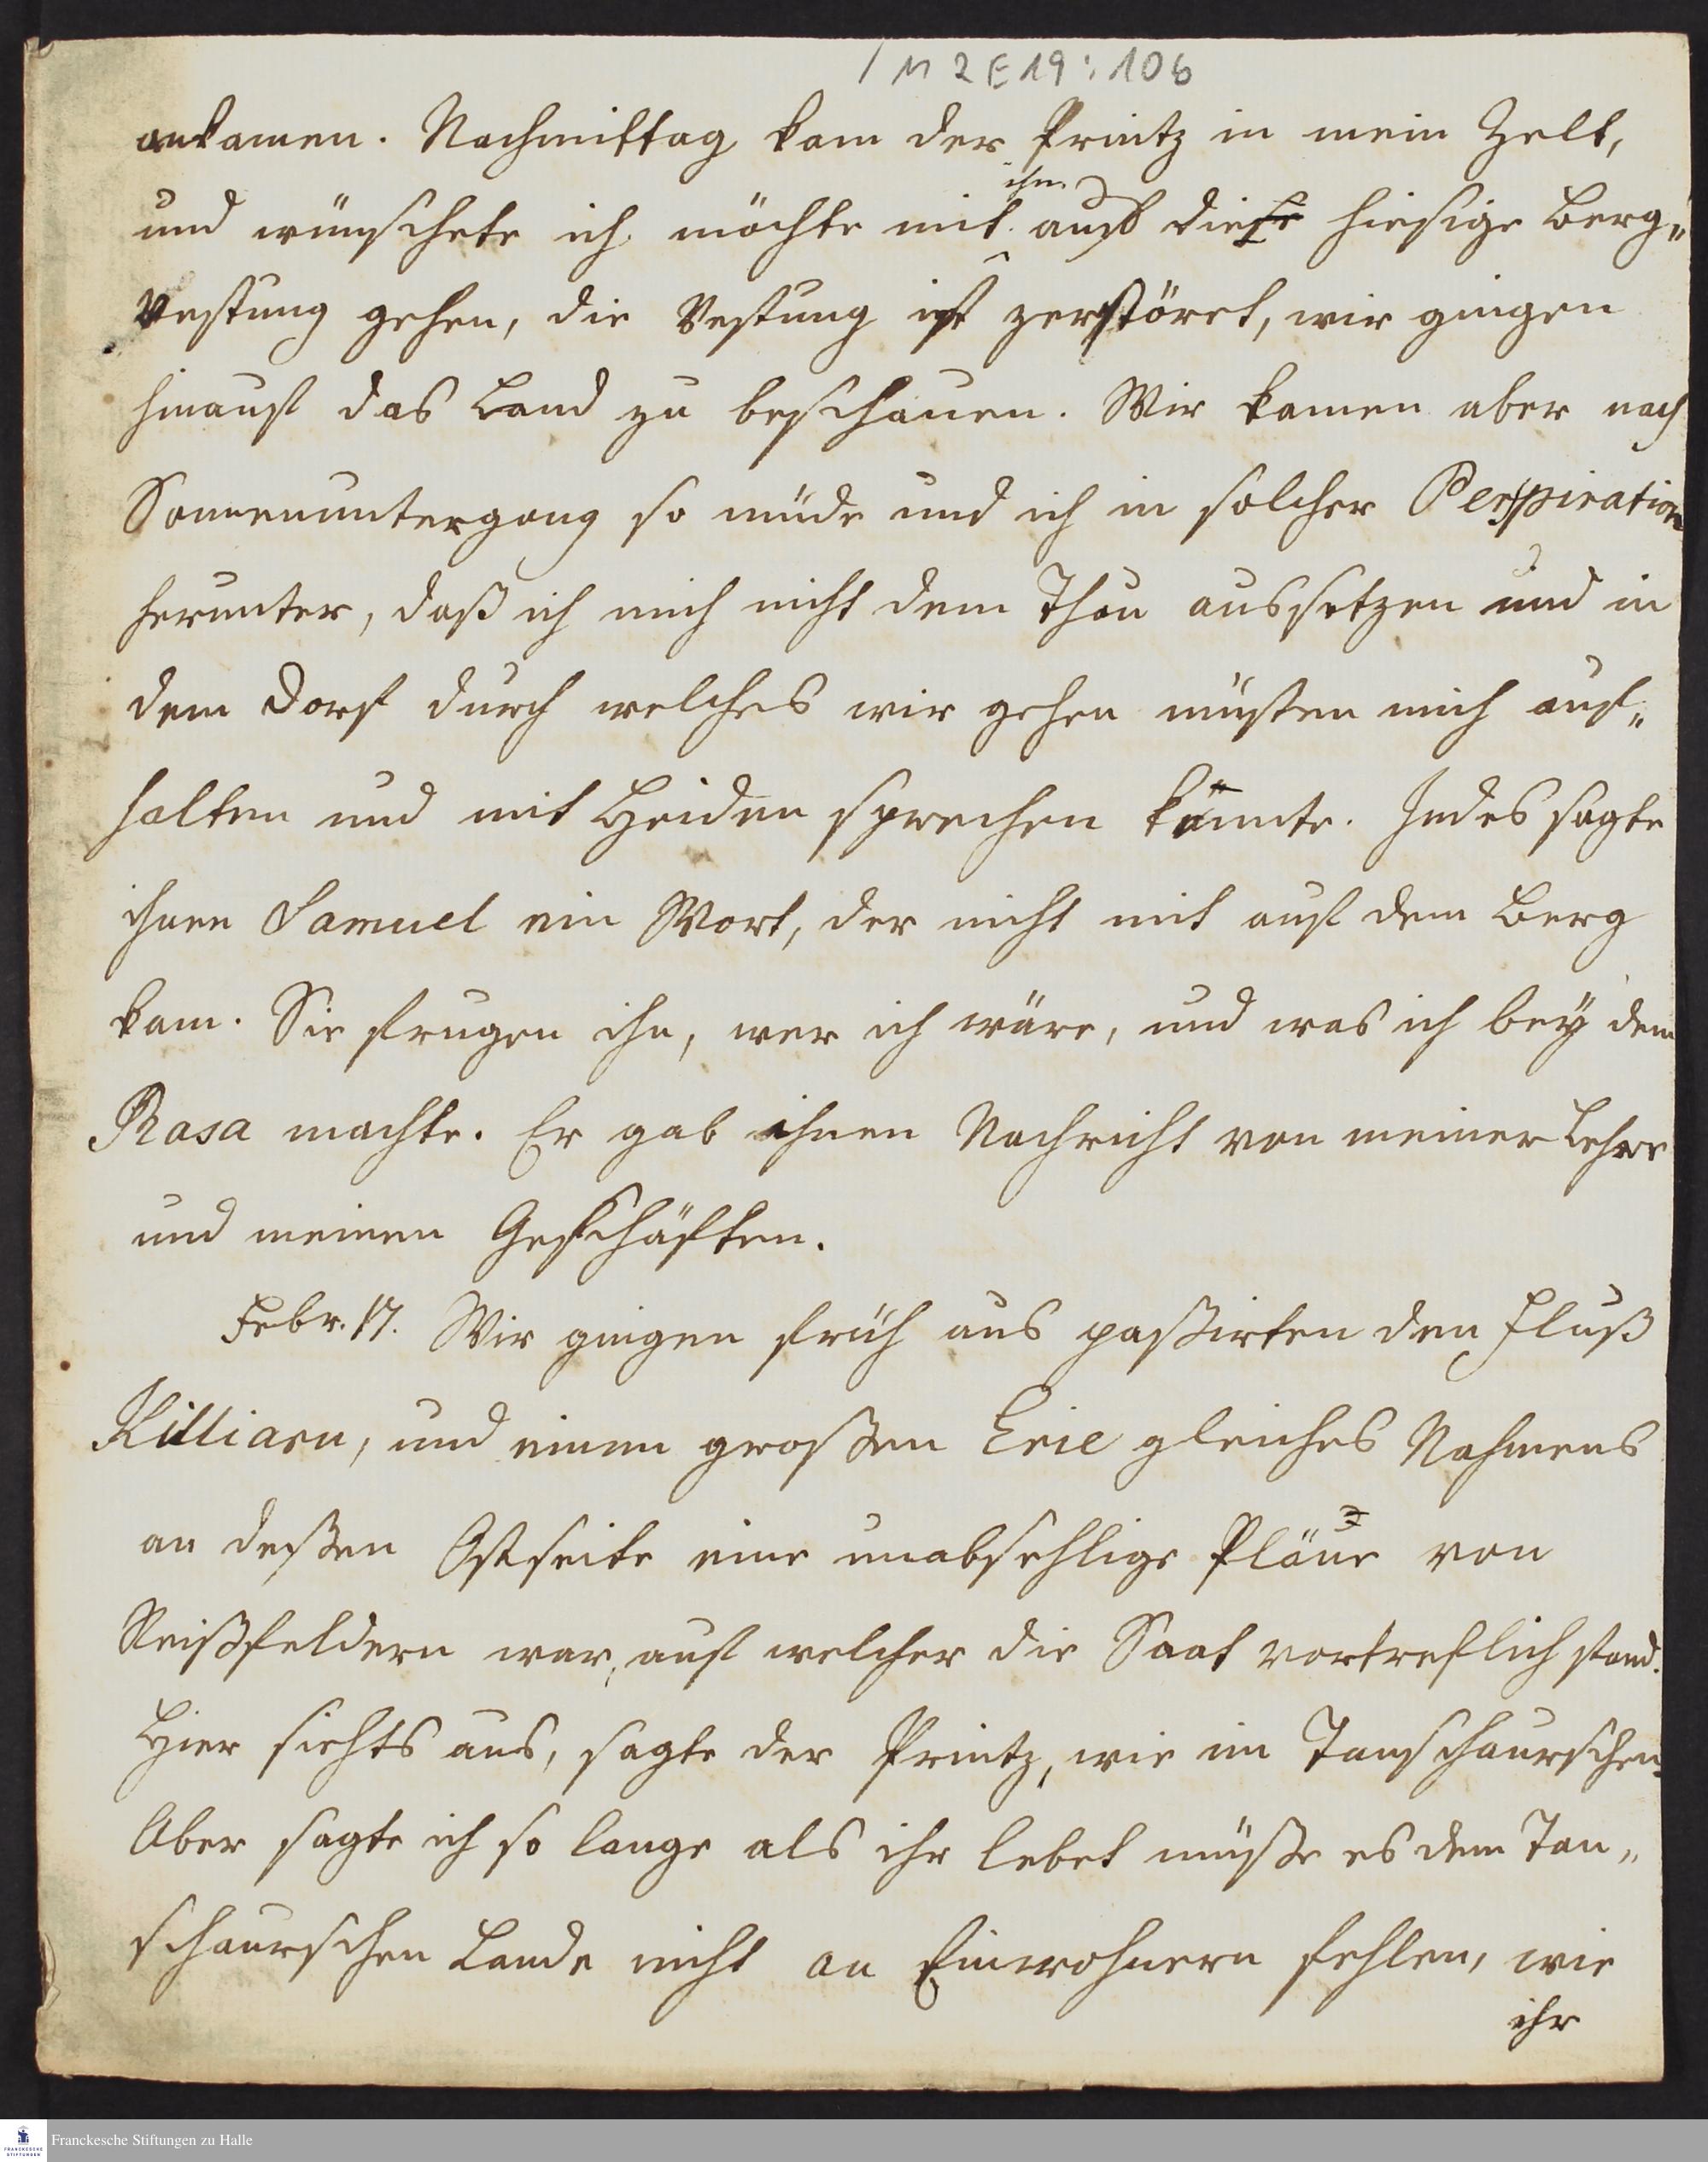 1 M 2 E 19 : 106
ankamen. Nachmittag kam der Printz in mein Zelt,
und wünschete ich möchte mit ihm auf die hiesige Berg„
Vestung gehen, die Vestung ist zerstöret, wir gingen
hinauf das Land zu beschauen. Wir kamen aber nach
Sonnenuntergang so müde und ich in solcher Perspiration
herunter, daß ich mich nicht dem Thau aussetzen und in
dem Dorf durch welches wir gehen müsten mich auf„
halten und mit Heiden sprechen könnte. Indes sagte
ihnen Samuel ein Wort, der nicht mit auf dem Berg
kam. Sie frugen ihn, wer ich wäre, und was ich bey dem
Rasa machte. Er gab ihnen Nachricht von meiner Lehre
und meinen Geschäften.
Febr. 17. Wir gingen früh aus paßirten den Fluß
Killiaru, und einen großen Erie gleiches Nahmens
an deßen Ostseite eine unabsehlige Pläne von
Reißfeldern war, auf welcher die Saat vortreflich stand.
Hier siehts aus, sagte der Printz, wie im Tanschaurschen.
Aber sagte ich so lange als ihr lebet müße es dem Tan„
schaurschen Lande nicht an Einwohnern fehlen, wie
ihr
Franckesche Stiftungen zu Halle